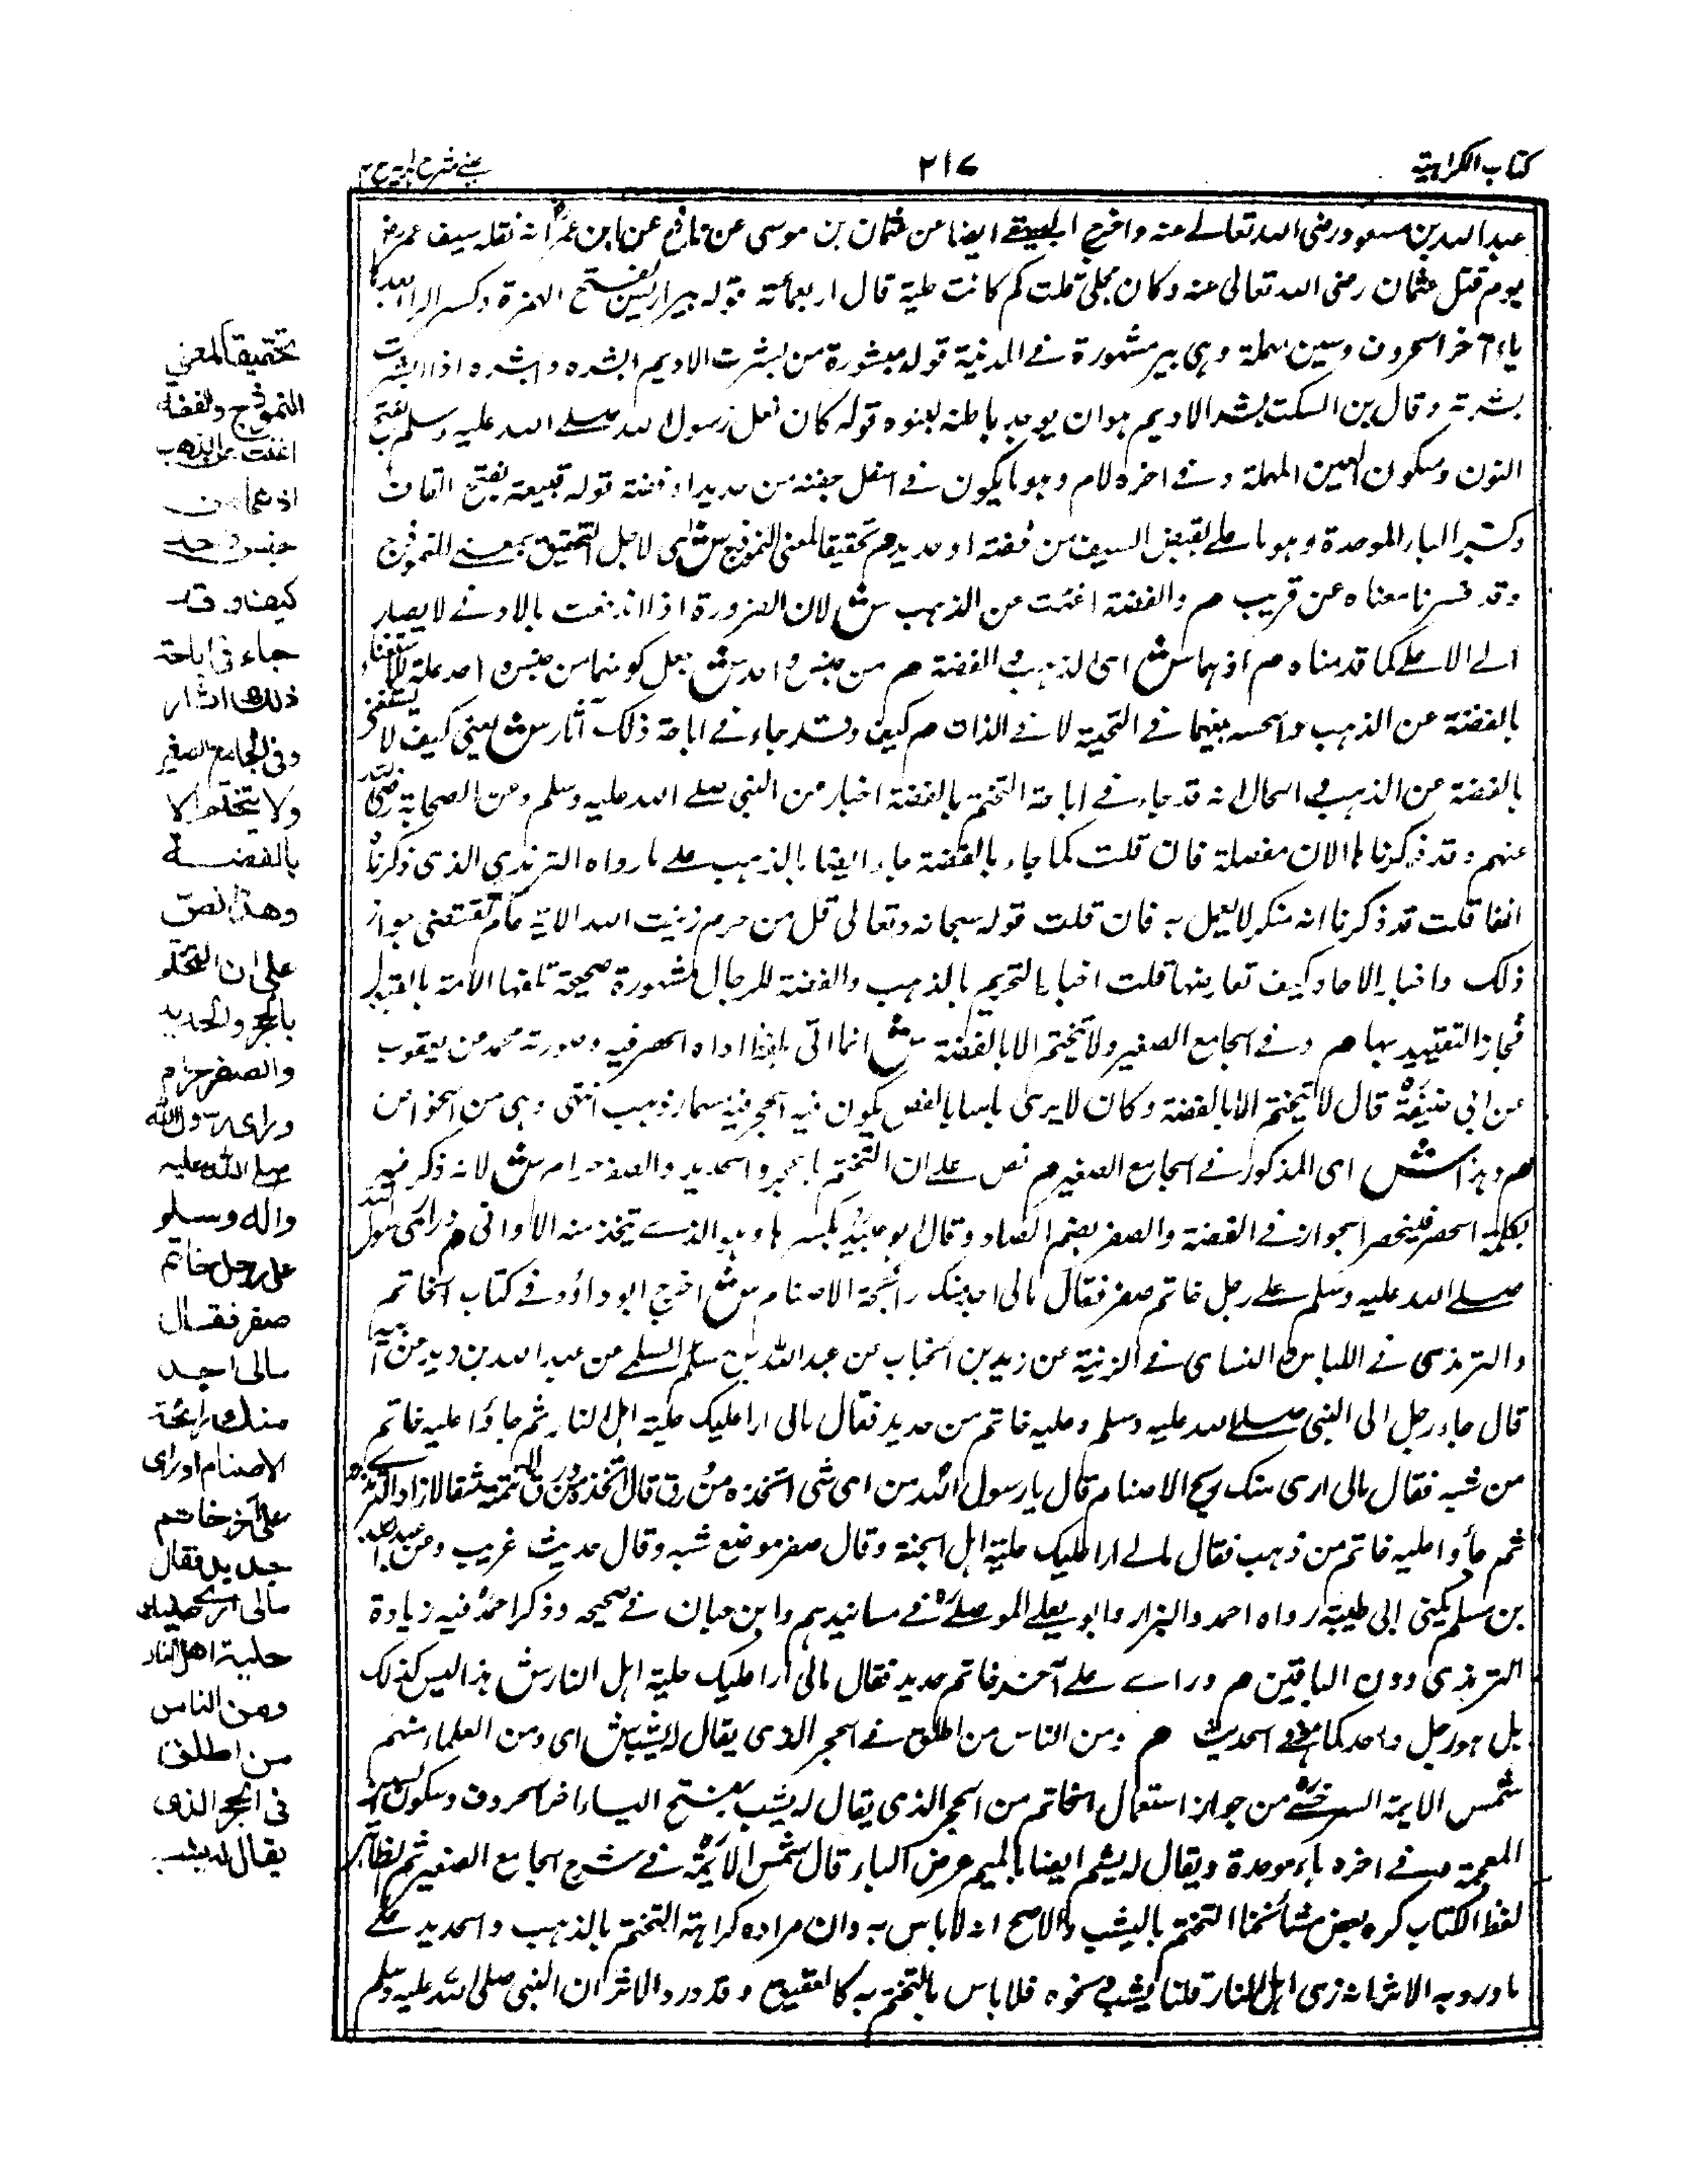 كتاب الكراهية
٢١٧
عبد الله بن مسعود رضى الله تعالے عنه واخرج البيهقے ايضا عن عثمان بن موسى عن نافع عن ابن عمرؓ انه تقلد سيف عمر رضؓ
يوم قتل عثمان رضى الله تعالى عنه وكان محلى قلت كم كانت حلية قال اربعمائة قوله بير اريس بفتح الهمزة وكسر الراء بعدها
ياء آخر الحروف وسين مهملة وہى بير مشهورة فے المدينة قوله مبشورة من بشرت الاديم ابشره وابشره اذا ابشرت
بشرته وقال بن السكت بشر الاديم ہوان يوخذ باطنه قوله كان نعل رسول الله صلے الله عليه وسلم بفتح
النون وسكون العين المهملة وفے اخره لام وہو ما يكون فے اسفل جفنه من حديد او فضة قوله قبيعة بفتح القاف
وكسر الباء الموحدة وہو ما علے مقبض السيف من فضة او حديد م تحقيقا لمعنى النموذج ش اى لاجل التحقيق بمعنے النموذج
وقد فسرنا معناه عن قريب م والفضة اغنت عن الذہب ش لان الضرورة اذا اندفعت بالادنے لايصار
الے الاعلے كما قدمناه م اذ ہما ش اى الذہب والفضة م من جنس واحد ش جعل كونہما من جنس واحد علة لاستغناء
بالفضة عن الذہب فے التحلية لا فے الذات م كيف وقد جاء فے اباحة ذلك آثار ش يعنى كيف لا يستغنى
بالفضة عن الذہب والحال انه قد جاء فے اباحة التختم بالفضة اخبار من النبى صلے الله عليه وسلم وعن الصحابة رضى الله
عنهم وقد ذكرناہا الان مفصلة فان قلت كما جاء بالفضة جاء ايضا بالذہب علے ما رواه الترمذى الذى ذكرناه
انفا قلت قد ذكرنا انه منكر لايعمل به فان قلت قوله سبحانه وتعالى قل من حرم زينت الله الاية عام تقتضى جواز
ذلك واخبار الاحاد كيف تعارضها قلت اخبار التحريم بالذہب والفضة للرجال مشهورة صحيحة تلقها الامة بالقبول
فجاز التقييد بها م وفے الجامع الصغير ولا يتختم الا بالفضة ش انما اتى بلفظ اداه الحصر فيه وصورته محمد عن يعقوب
عن ابى حنيفةؒ قال لا يتختم الا بالفضة وكان لايرى باسا بالفص يكون فيه الحجر فيه مسمار ذہب انتهى وہى من الخواص
م وہذا ش اى المذكور فے الجامع الصغير م نص علے ان التختم بالحجر والحديد والصفر حرام ش لانه ذكر فيه
بكلمة الحصر فينحصر الجواز فے الفضة والصفر بضم الصاد وقال ابو عبيد بكسرہا وہو الذے تتخذ منه الاوانى م وراى رسول الله
صلے الله عليه وسلم علے رجل خاتم صفر فقال مالى اجد منك رائحة الاصنام ش اخرج ابو داؤد فے كتاب الخاتم
والترمذى فے اللباس والنساى فے الزينة عن زيد بن الحباب عن عبد الله بن مسلم السلمے عن عبد الله بن بريدة عن ابيه
قال جاء رجل الى النبى صلے الله عليه وسلم وعليه خاتم من حديد فقال مالى ارا عليك حلية اہل النار ثم جاؤا عليه خاتم
من شبه فقال مالى ارى منك ريح الاصنام قال يارسول الله من اى شى اتخذه من ورق قال اتخذه من ورق ولا تتمه مثقالا زاد الترمذے
ثم جاؤا عليه خاتم من ذہب فقال مالے ارا عليك حلية اہل الجنة وقال صفر موضع شبه وقال حديث غريب وعن عبد الله
بن مسلم يكنى ابى طيبة رواه احمد والبزار وابو يعلے الموصلےؒ فے مسانيدہم وابن حبان فے صحيحه وذكر احمدؒ فيه زيادة
الترمذى دون الباقين م وراے علے آخر خاتم حديد فقال مالى ارا عليك حلية اہل النار ش ہذا ليس كذلك
بل ہو رجل واحد كما مر فے الحديث م ومن الناس من اطلق فے الحجر الذى يقال له يشب ش اى ومن العلماء منهم
شمس الايمة السرخسےؒ من جواز استعمال الخاتم من الحجر الذى يقال له يشب بفتح الياء اخر الحروف وسكون الشين
المعجمة وفے اخره باء موحدة ويقال له يشم ايضا بالميم عوض الباء قال شمس الائمةؒ فے شرح الجامع الصغير ثم ظاہر
لفظ الكتاب كره بعض مشائخنا التختم باليشب والاصح انه لاباس به وان مراده كراہة التختم بالذہب والحديد علے
ماورد به الاثر انه زى اہل النار قلنا يشب ونحوه فلا باس بالتختم به كالعقيق وقد ورد الاثر ان النبى صلى الله عليه وسلم
تحقيقا لمعنى
النموذج والفضة
اغنت عن الذهب
اذ هما من
جنس واحد
كيف وقد
جاء فى اباحة
ذلك اثار
وفى الجامع الصغير
ولا يتختم الا
بالفضة
وهذا نص
على ان التختم
بالحجر والحديد
والصفر حرام
وراى رسول الله
صلى الله عليه
واله وسلم
على رجل خاتم
صفر فقال
مالى اجد
منك رائحة
الاصنام وراى
على آخر خاتم
حديد فقال
مالى ارى عليك
حلية اهل النار
ومن الناس
من اطلق
فى الحجر الذى
يقال له يشب